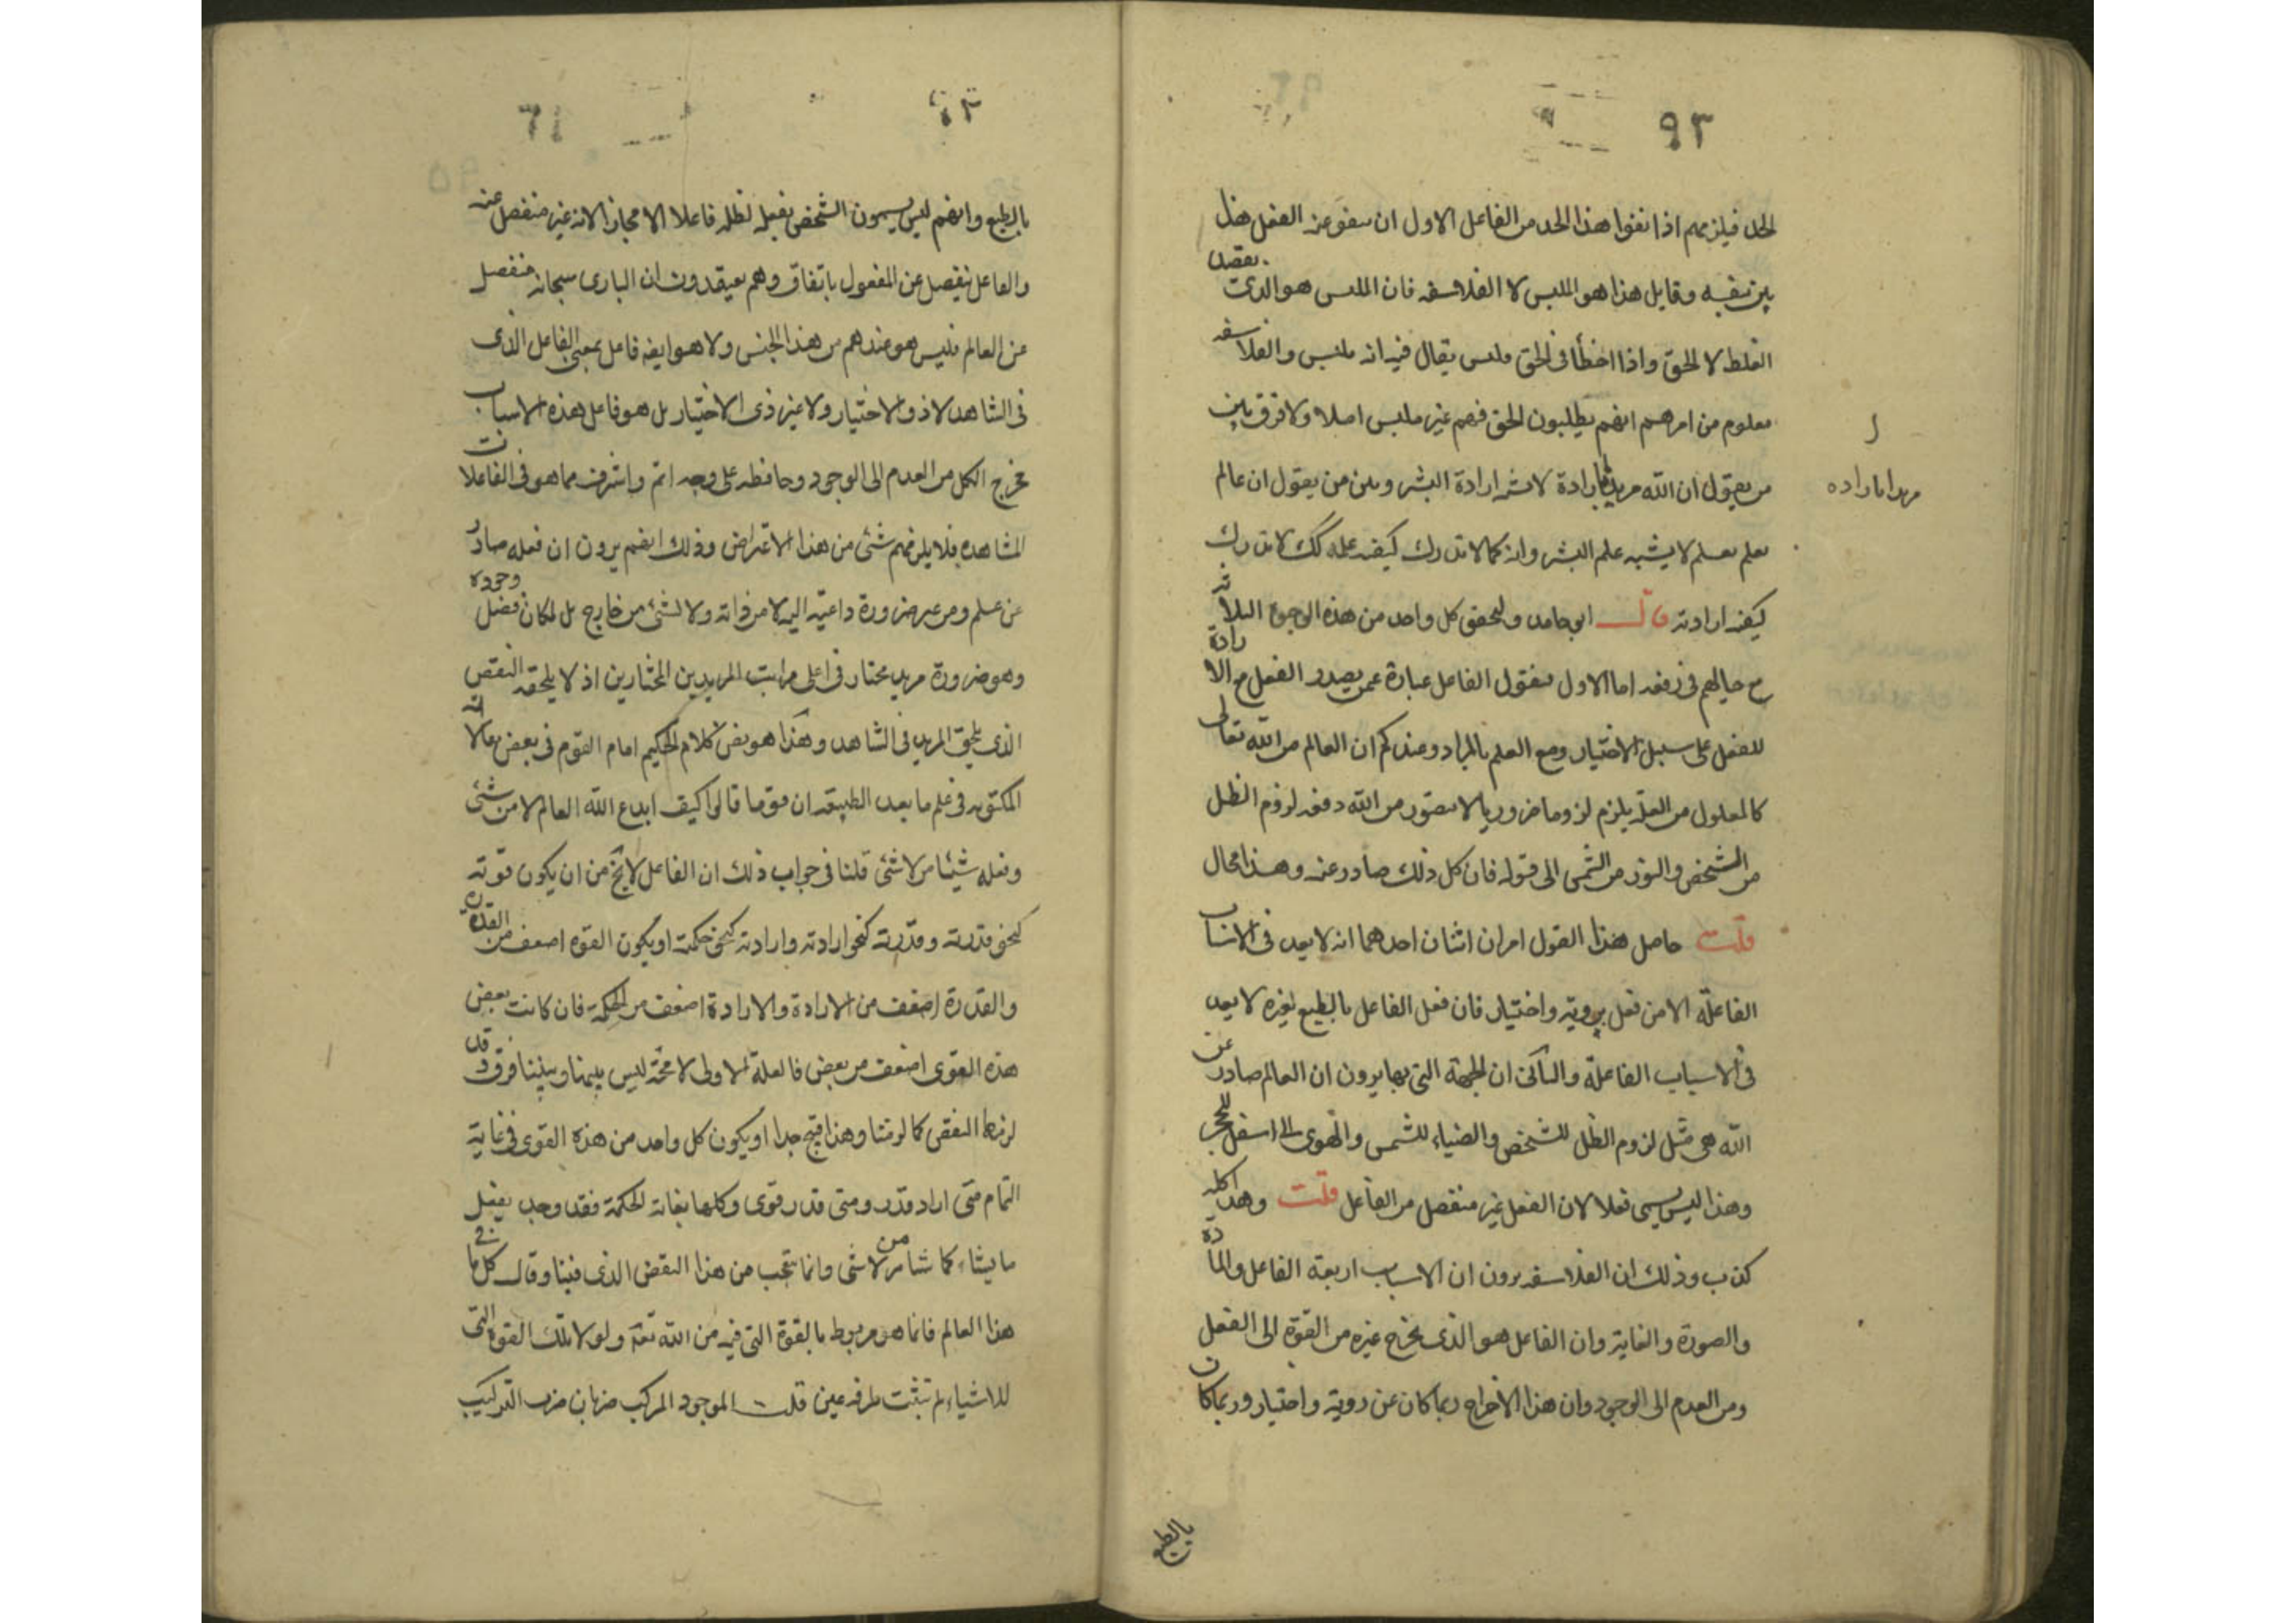 ٩٣
الحد فيلزمهم اذا نفوا هذا الحد من الفاعل الاول ان ينفو عنه الفعل هذا
بين بنفسه وقايل هذا هو الملبس لا الفلاسفه فان الملبس هو الذى يقصد
الغلط لا الحق واذا اخطأ فى الحق فليس يقال فيه انه ملبس والفلاسفه
معلوم من امرهم انهم يطلبون الحق فهم غير ملبس اصلا ولا فرق بين
من يقول ان الله مريد بارادة لا تشبه ارادة البشر وبين من يقول ان عالم
مريدا باراده
بعلم بعلم لا يشبه علم البشر وانه كما لا تدرك كيفيه علمه كك لا تدرك
كيفيه ارادته قال ابو حامد ولنحقق كل واحد من هذه الوجوه الثلاثه
مع خيالهم فى دفعه اما الاول فنقول الفاعل عبارة عمن يصدر الفعل مع الارادة
للفعل على سبيل الاختيار ومع العلم بالمراد وعندكم ان العالم من الله تعالى
كالمعلول من العلة يلزم لزوما ضروريا لا يتصور من الله دفعه لزوم الظل
من الشخص والنور من الشمس الى قوله فان كل ذلك صادر عنه وهذا محال
قلت حاصل هذا القول امران اثنان احدهما انه لا يعد فى الاسباب
الفاعلة الا من فعل بروية واختيار فان فعل الفاعل بالطبع لغيره لا يعد
فى الاسباب الفاعلة والثانى ان الجهة التى بها يرون ان العالم صادر عن
الله هى مثل لزوم الظل للشخص والضياء للشمس والهوى الى اسفل للحجر
وهذا ليس يسمى فعلا لان الفعل غير منفصل من الفاعل قلت وهذا كله
كذب وذلك ان الفلاسفه يرون ان الاسباب اربعة الفاعل والمادة
والصورة والغاية وان الفاعل هو الذى يخرج غيره من القوة الى الفعل
ومن العدم الى الوجود وان هذا الاخراج ربما كان عن روية واختيار وربما كان
بالطبع
٦١
بالطبع وانهم ليس يسمون الشخص بفعله لظله فاعلا الا مجازا لانه غير منفصل عنه
والفاعل ينفصل عن المفعول باتفاق وهم يعتقدون ان البارى سبحانه منفصل
عن العالم فليس هو عندهم من هذا الجنس ولا هو ايضا فاعل بمعنى الفاعل الذى
فى الشاهد لا ذو الاختيار ولا غير ذى الاختيار بل هو فاعل هذه الاسباب
مخرج الكل من العدم الى الوجود وحافظه على وجه اتم واشرف مما هو فى الفاعلات
المشاهده فلا يلزمهم شئ من هذا الاعتراض وذلك انهم يرون ان فعله صادر
عن علم ومن غير ضرورة داعية اليه لا من ذاته ولا لشئ من خارج بل لمكان فضل وجوده
وهو ضرورة مريد مختار فى اعلى مراتب المريدين المختارين اذ لا يلحقه النقص
الذى يلحق المريد فى الشاهد وهكذا هو نص كلام الحكيم امام القوم فى بعض مقالاته
المكتوبه فى علم ما بعد الطبيعة ان قوما قالوا كيف ابدع الله العالم لا من شئ
وفعله شيئا من لا شئ قلنا فى جواب ذلك ان الفاعل لا يخ من ان يكون قوته
كنحو قدرته وقدرته كنحو ارادته وارادته كنحو حكمته او يكون القوة اضعف من القدرة
والقدرة اضعف من الارادة والارادة اضعف من الحكمة فان كانت بعض
هذه القوى اضعف من بعض فالعلة الاولى لا محة ليس بينها وبيننا فرق وقد
لزمها النقص كما لزمنا وهذا قبيح جدا او يكون كل واحد من هذه القوى فى غاية
التمام متى اراد قدر ومتى قدر قوى وكلها بغاية الحكمة فقد وجد يفعل
ما يشاء كما شا من لا شئ وانما يتعجب من هذا النقص الذى فينا وقال كل ما فى
هذا العالم فانما هو مربوط بالقوة التى فيه من الله تعه ولولا تلك القوة التى
للاشياء لم تثبت طرفه عين قلت الموجود المركب ضربان ضرب التركيب